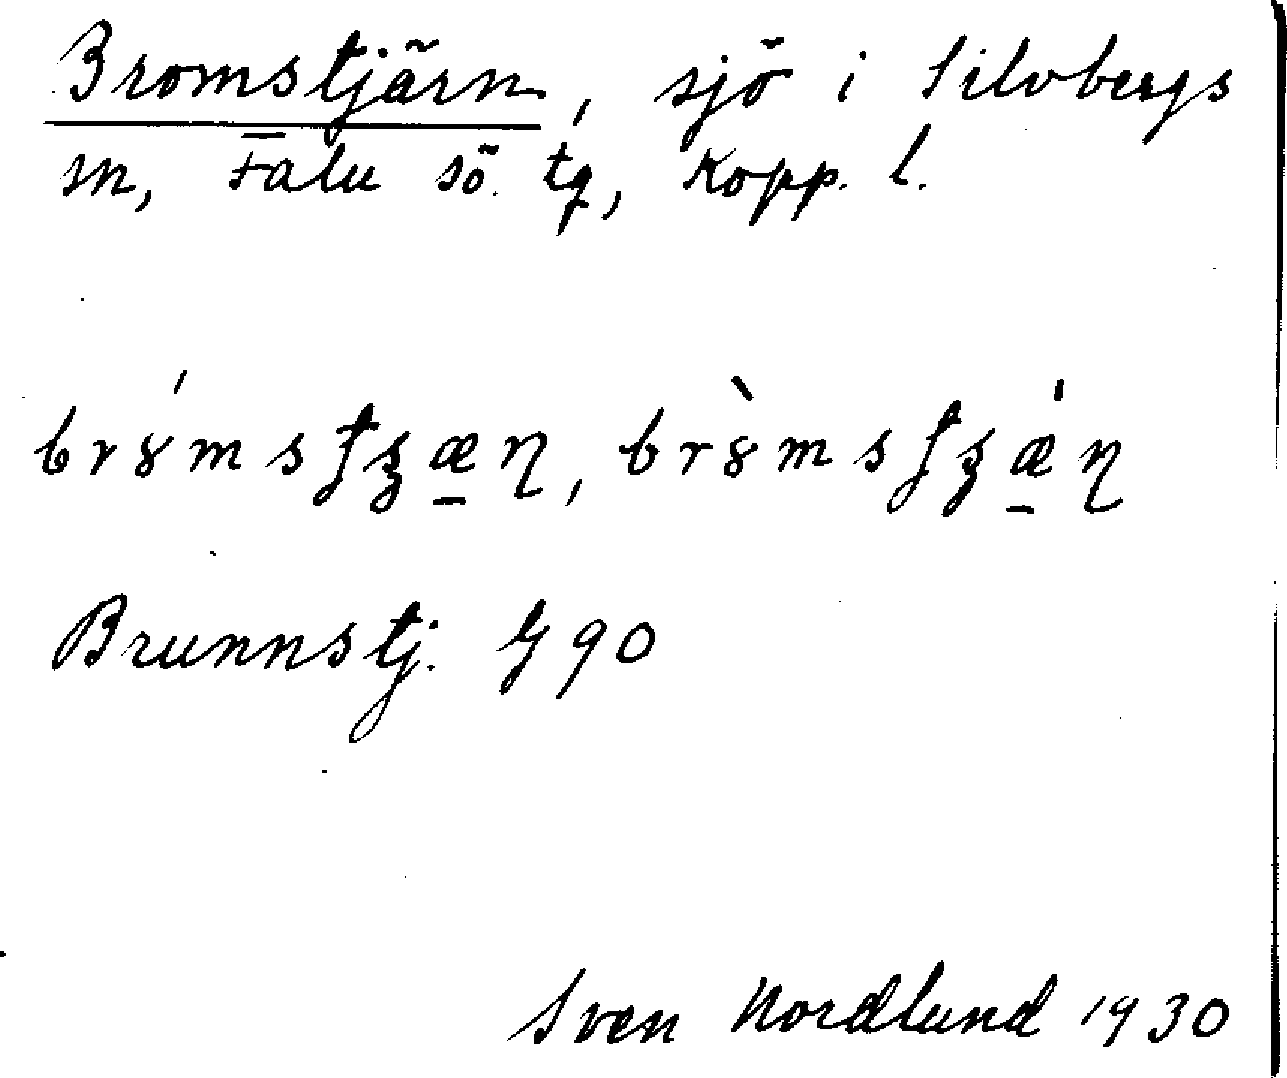 Bromstjärn, sjö i Silvbergs
sn, Falu sö. tg, Kopp. l.
Brunnstj. G 90
Sven Nordlund 1930